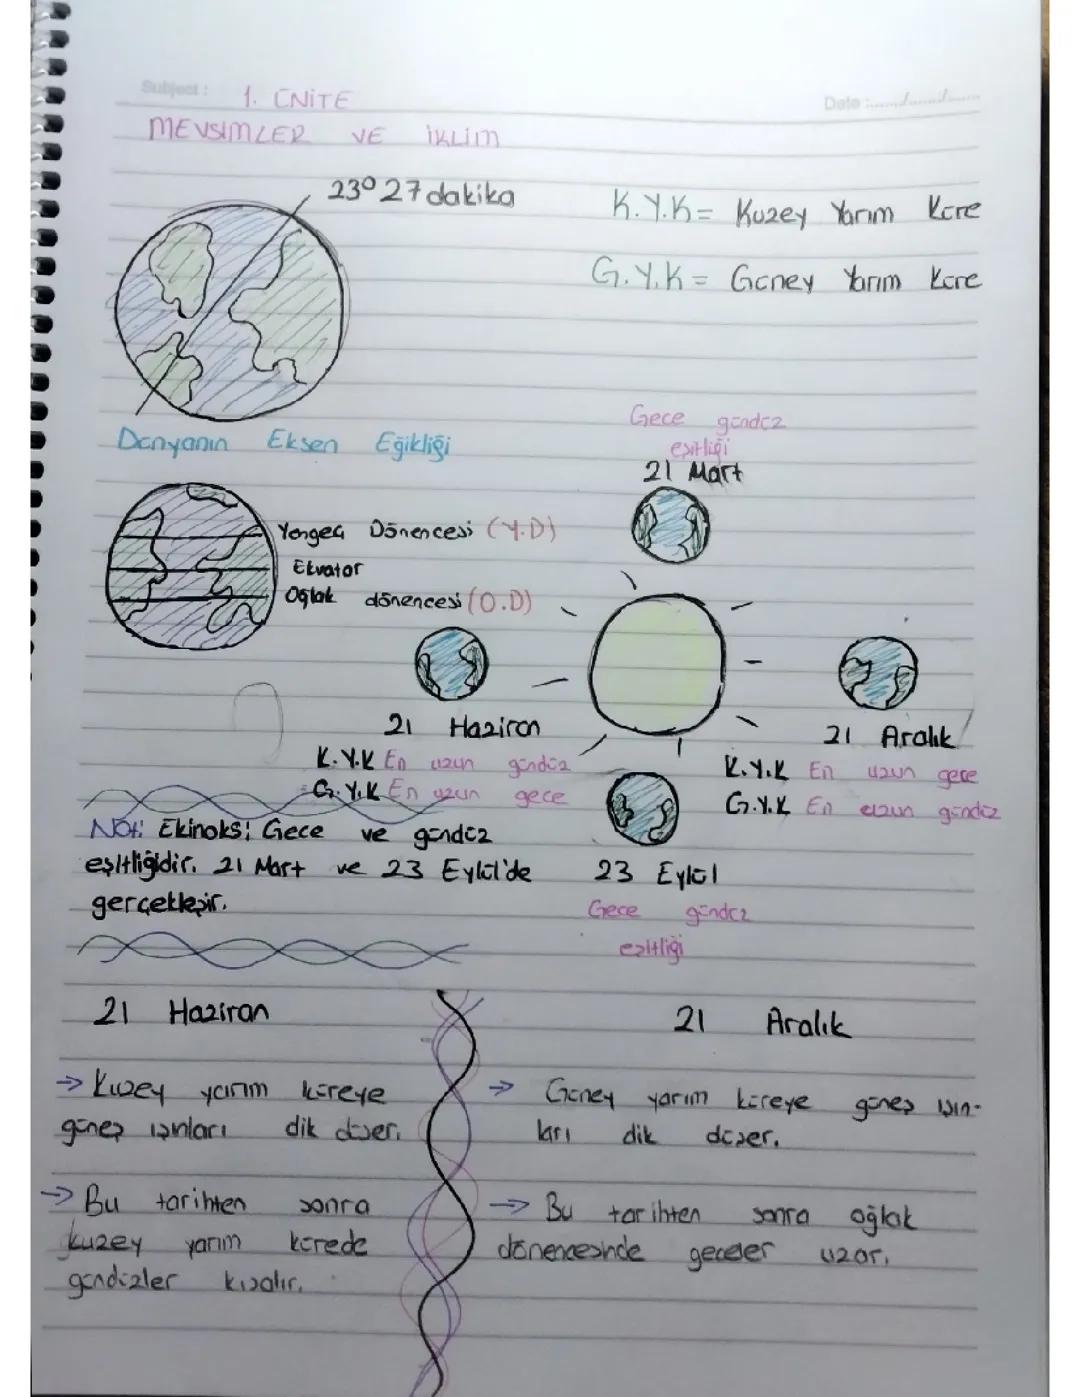 Subject: 1. ÜNİTE
Date :....../....../......
MEVSİMLER VE İKLİM
23° 27 dakika
K.Y.K = Kuzey Yarım Küre
G.Y.K = Güney Yarım Küre
Dünyanın Eksen Eğikliği
Gece gündüz
eşitliği
21 Mart
Yengeç Dönencesi (Y.D)
Ekvator
Oğlak dönencesi (O.D)
21 Haziran
K.Y.K En uzun gündüz
G.Y.K En uzun gece
21 Aralık
K.Y.K En uzun gece
G.Y.K En uzun gündüz
Not: Ekinoks; Gece ve gündüz
eşitliğidir. 21 Mart ve 23 Eylül'de
gerçekleşir.
23 Eylül
Gece gündüz
eşitliği
21 Haziran
→ Kuzey yarım küreye
güneş ışınları dik düşer.
→ Bu tarihten sonra
kuzey yarım kürede
gündüzler kısalır.
21 Aralık
→ Güney yarım küreye güneş ışın-
ları dik düşer.
→ Bu tarihten sonra oğlak
dönencesinde geceler uzar.